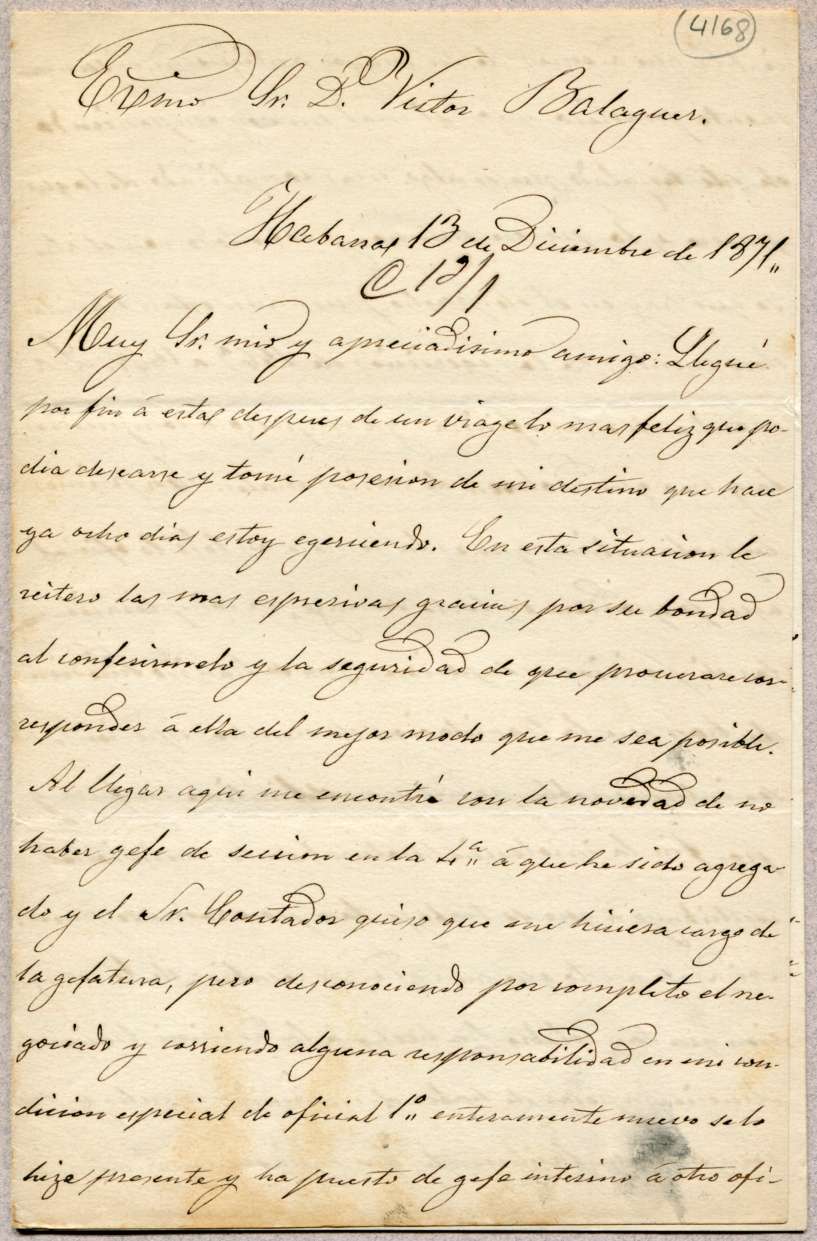 4168
Exmo Sr. D. Victor Balaguer.
Habana 13 de Diciembre de 1871,,
C 12/1
Muy Sr. mio y apreciadisimo amigo: Llegué
por fin á esta despues de un viage lo mas feliz que po-
dia desearse y tomé posesion de mi destino que hace
ya ocho dias estoy egerciendo. En esta situacion le
reitero las mas espresivas gracias por su bondad
al conferirmelo y la seguridad de que procurare cor-
responder á ella del mejor modo que me sea posible.
Al llegar aqui me encontré con la novedad de no
haber gefe de seccion en la 4ª,, á que he sido agrega-
do y el Sr. Contador quiso que me hiciera cargo de
la gefatura, pero desconociendo por completo el ne-
gociado y corriendo alguna responsabilidad en mi con-
dicion especial de oficial 1º,, enteramente nuevo se lo
hize presente y ha puesto de gefe interino á otro ofi-